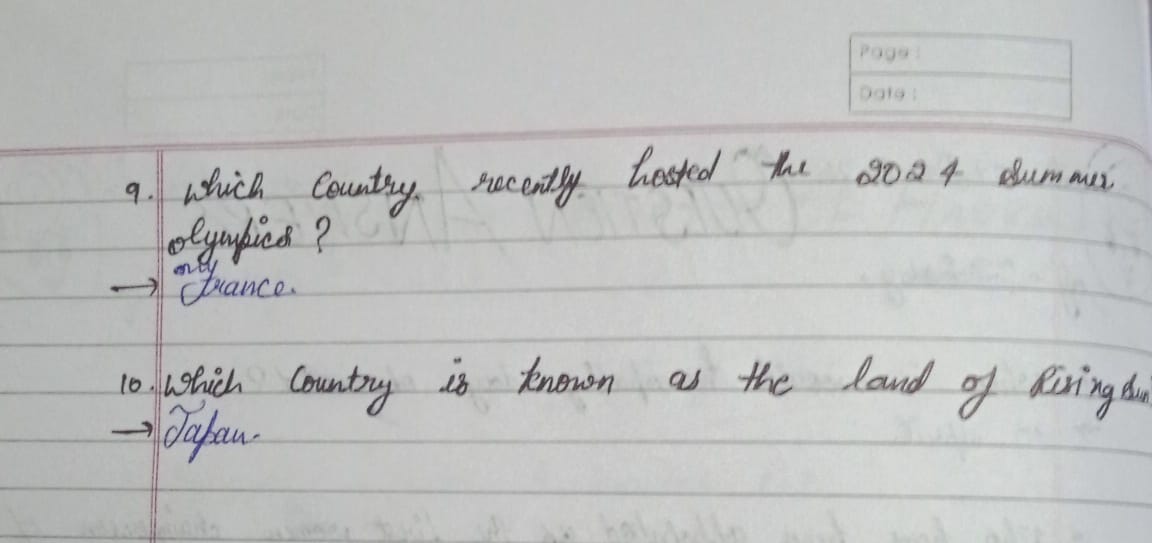 Page :
Date :
9. which Country recently hosted the 2024 Summer
olympics ?
only
→ France.
10. which Country is known as the land of Rising Sun
→ Japan.